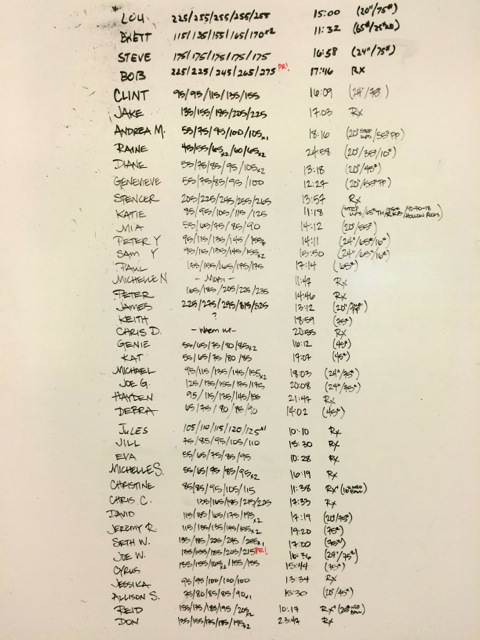 LOU 225/255/255/255/255 15:00 (20"/75#)
BRETT 115/135/155/165/170x2 11:32
STEVE 175/175/175/175/175 16:58 (24"/75#)
BOB 225/225/245/265/275 PR! 17:46 RX
CLINT 95/95/115/135/155 16:09 (24"/75#)
JAKE 135/155/185/205/225 17:03 Rx
ANDREA M. 55/75/95/100/105x1 18:16
RAINE 45/55/65x2/60/65x2 24:58
DIANE 55/75/85/95/105x2 13:18 (20"/45#)
GENEVIEVE 55/75/85/95/100 12:27
SPENCER 205/225/245/255/265 13:57 Rx
KATIE 85/95/105/115/125 11:18
MIA 55/65/75/85/90 14:12 (20"/55#)
PETER Y 95/115/135/145/ 14:11
SAM Y 95/115/135/145/155 15:50
PAUL 135/155/165/175/175 17:14 (65#)
MICHELLE N 11:47 Rx
PETER 165/185/205/225/235 14:46 Rx
JAMES 225/275/295/315/325 13:12
KEITH ? 18:59 (75#)
CHRIS D. 20:55 Rx
GENIE 55/65/75/80/85x2 16:12 (45#)
KAT 55/65/75/80/85 19:07 (45#)
MICHAEL 95/115/135/145/155x2 18:03 (24"/75#)
JOE G. 125/135/155/175/195 20:08 (24"/75#)
HAYDEN 95/115/135/145/155 21:47 Rx
DEBRA 65/75/80/85/90 14:02 (45#)
JULES 105/110/115/120/125x1 10:10 Rx
JILL 75/85/95/105/110 15:30 Rx
EVA 55/65/75/85/95 10:28 Rx
MICHELLE S. 55/65/75/85/95x2 16:19 Rx
CHRISTINE 85/85/95/105/115 11:38 Rx+
CHRIS C. 135/165/185/215/225 17:33 Rx
DAVID 115/135/165/175/195x2 17:19 (20"/75#)
JEREMY R. 115/135/135/145/155x2 19:20 (75#)
SETH W. 135/185/205/245/265x1 17:00 (75#)
JOE W. 135/155/185/205/215 PR! 16:36 (24"/75#)
CYRUS 135/155/165x2/155/155 15:44 (75#)
JESSIKA 95/95/100/100/100 13:34 Rx
ALLISON S. 75/80/85/85/90x1 15:30 (20"/45#)
REID 155/175/185/195/205x2 10:17 Rx+
DON 135/155/175/185/195x2 23:47 Rx